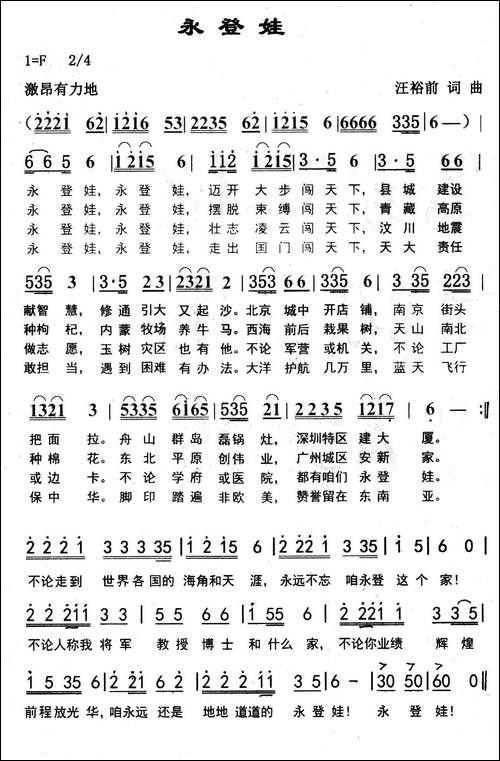 永登娃
1=F 2/4
激昂有力地 汪裕前 词 曲
( 2 2 2 1 6 2 | 1 2 1 6 5 3 | 2 2 3 5 6 2 | 1 2 1 5 6 | 6 6 6 6 3 3 5 | 6 — ) |
6 6 5 6 | 1 2 1 5 6 | 1 1 2 1 2 1 5 | 3 · 5 | 3 · 5 6 6 |
永 登 娃, 永 登 娃, 迈 开 大 步 闯 天 下, 县 城 建设
永 登 娃, 永 登 娃, 摆 脱 束 缚 闯 天 下, 青 藏 高原
永 登 娃, 永 登 娃, 壮 志 凌 云 闯 天 下, 汶 川 地震
永 登 娃, 永 登 娃, 走 出 国 门 闯 天 下, 天 大 责任
5 3 5 3 | 3 · 5 2 3 | 2 3 2 1 2 | 3 5 3 6 6 | 3 3 5 6 | 3 3 5 2 2 3 |
献智 慧, 修 通 引大 又 起 沙。北京 城中 开店 铺, 南京 街头
种枸 杞, 内蒙 牧场 养 牛 马。西海 前后 栽果 树, 天山 南北
做志 愿, 玉树 灾区 也 有 他。不论 军营 或机 关, 不论 工厂
敢担 当, 遇到 困难 有 办 法。大洋 护航 几万 里, 蓝天 飞行
1 3 2 1 3 | 5 3 3 5 6 1 6 5 | 5 3 5 2 1 | 2 2 3 5 1 2 1 7 | 6 — :||
把 面 拉。舟 山 群 岛 磊 锅 灶, 深圳特区 建 大 厦。
种 棉 花。东 北 平 原 创 伟 业, 广州城区 安 新 家。
或 边 卡。不 论 学 府 或 医 院, 都有咱们 永 登 娃。
保 中 华。脚 印 踏 遍 非 欧 美, 赞誉留在 东 南 亚。
2 2 2 1 | 3 3 3 3 5 | 1 2 1 5 6 | 2 2 2 1 | 6 3 3 5 | 1 5 | 6 0 |
不论走到 世界各国的 海角和天 涯, 永远不忘 咱永登 这 个 家!
2 2 2 1 1 | 5 3 5 5 | 6 2 2 3 | 1 5 5 6 | 2 2 2 1 1 | 3 3 5 |
不论人称我 将军 教授 博士 和什么 家, 不论你业绩 辉煌
1 5 5 6 | 2 2 2 1 1 | 6 2 2 2 3 | 5 5 5 0 | 3 0 5 0 | 6 0 0 ||
前程放光华, 咱永远 还是 地地 道道的 永 登 娃! 永 登 娃!